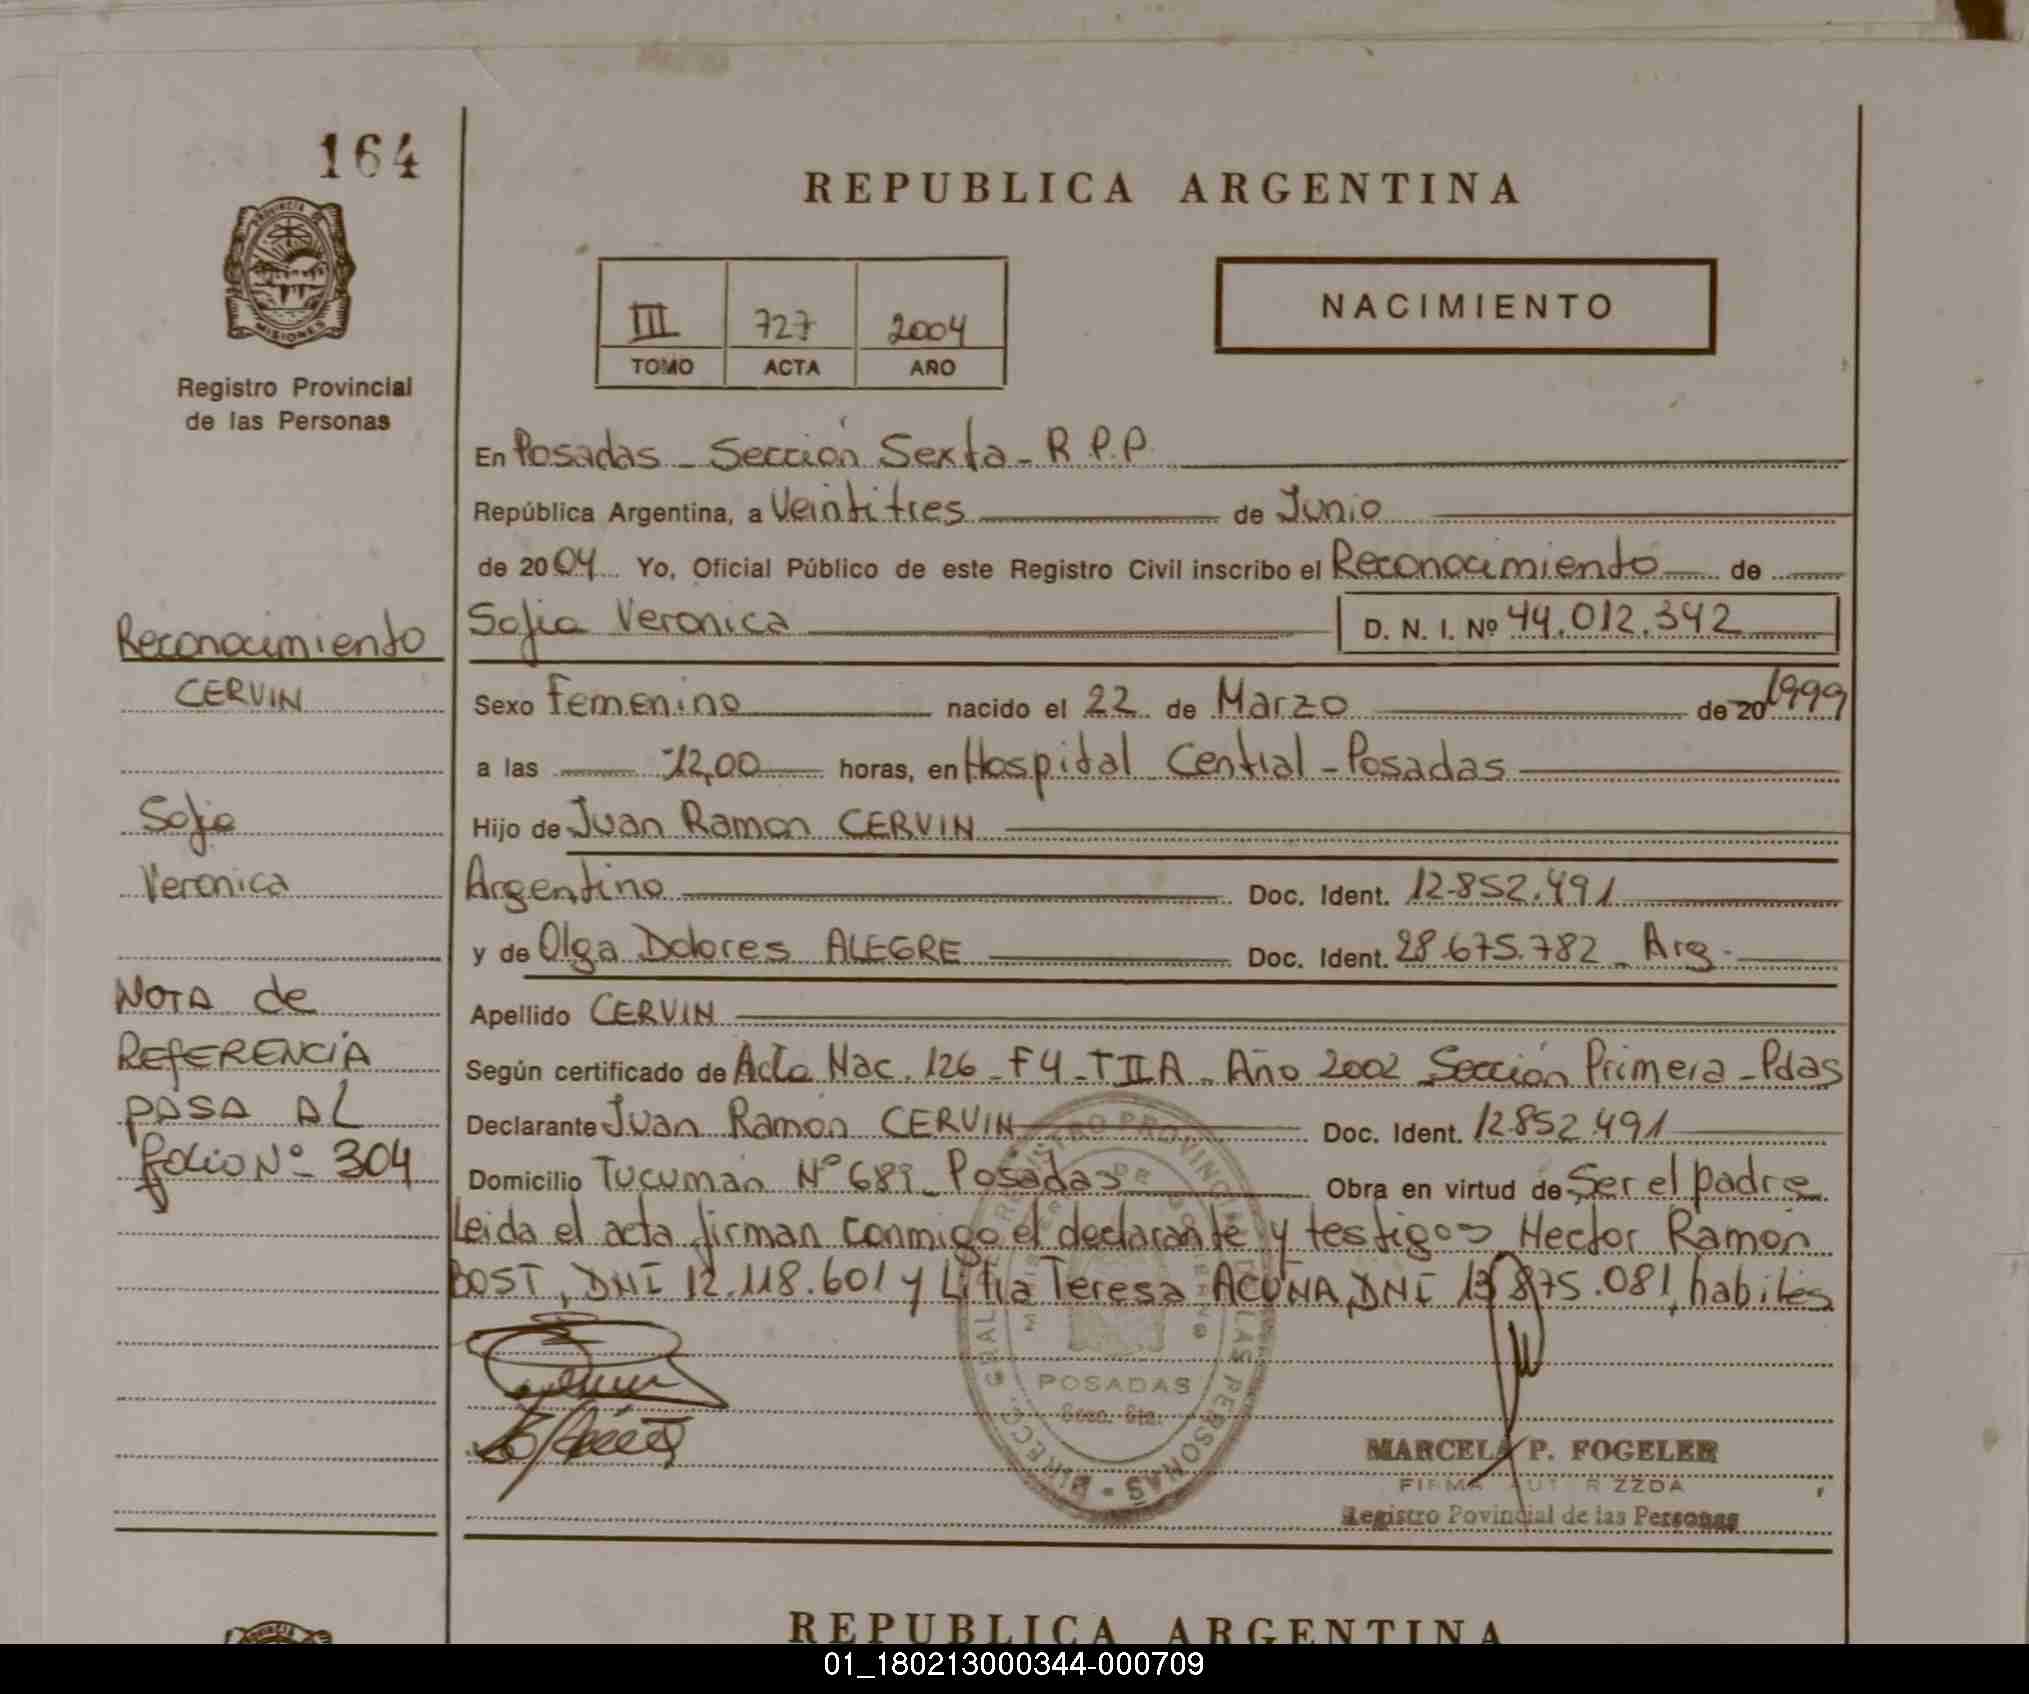 164
PROVINCIA DE
MISIONES
Registro Provincial
de las Personas
REPUBLICA ARGENTINA
III 727 2004
TOMO ACTA AÑO
NACIMIENTO
En Posadas - Sección Sexta - R.P.P.
República Argentina, a Veintitres de Junio
de 2004 Yo, Oficial Público de este Registro Civil inscribo el Reconocimiento de
Sofia Veronica D. N. I. Nº 44.012.342
Sexo Femenino nacido el 22 de Marzo de 20 1999
a las 12,00 horas, en Hospital Central - Posadas
Hijo de Juan Ramon CERVIN
Argentino Doc. Ident. 12.852.491
y de Olga Dolores ALEGRE Doc. Ident. 28.675.782 - Arg.
Apellido CERVIN
Según certificado de Acta Nac. 126 - F 4 - T II A - Año 2002 Sección Primera - Pdas
Declarante Juan Ramón CERVIN Doc. Ident. 12.852.491
Domicilio Tucuman Nº 689 - Posadas Obra en virtud de Ser el padre
Leida el acta firman conmigo el declarante y testigos Hector Ramón
BOST, DNI 12.118.601 y Lilia Teresa ACUÑA, DNI 13.875.081, habiles
Reconocimiento
CERVIN
Sofia
Veronica
NOTA de
REFERENCIA
PASA AL
folio Nº 304
POSADAS
Secc. 6ta.
MARCELA P. FOGELER
Registro Povincial de las Personas
REPUBLICA ARGENTINA
01_180213000344-000709